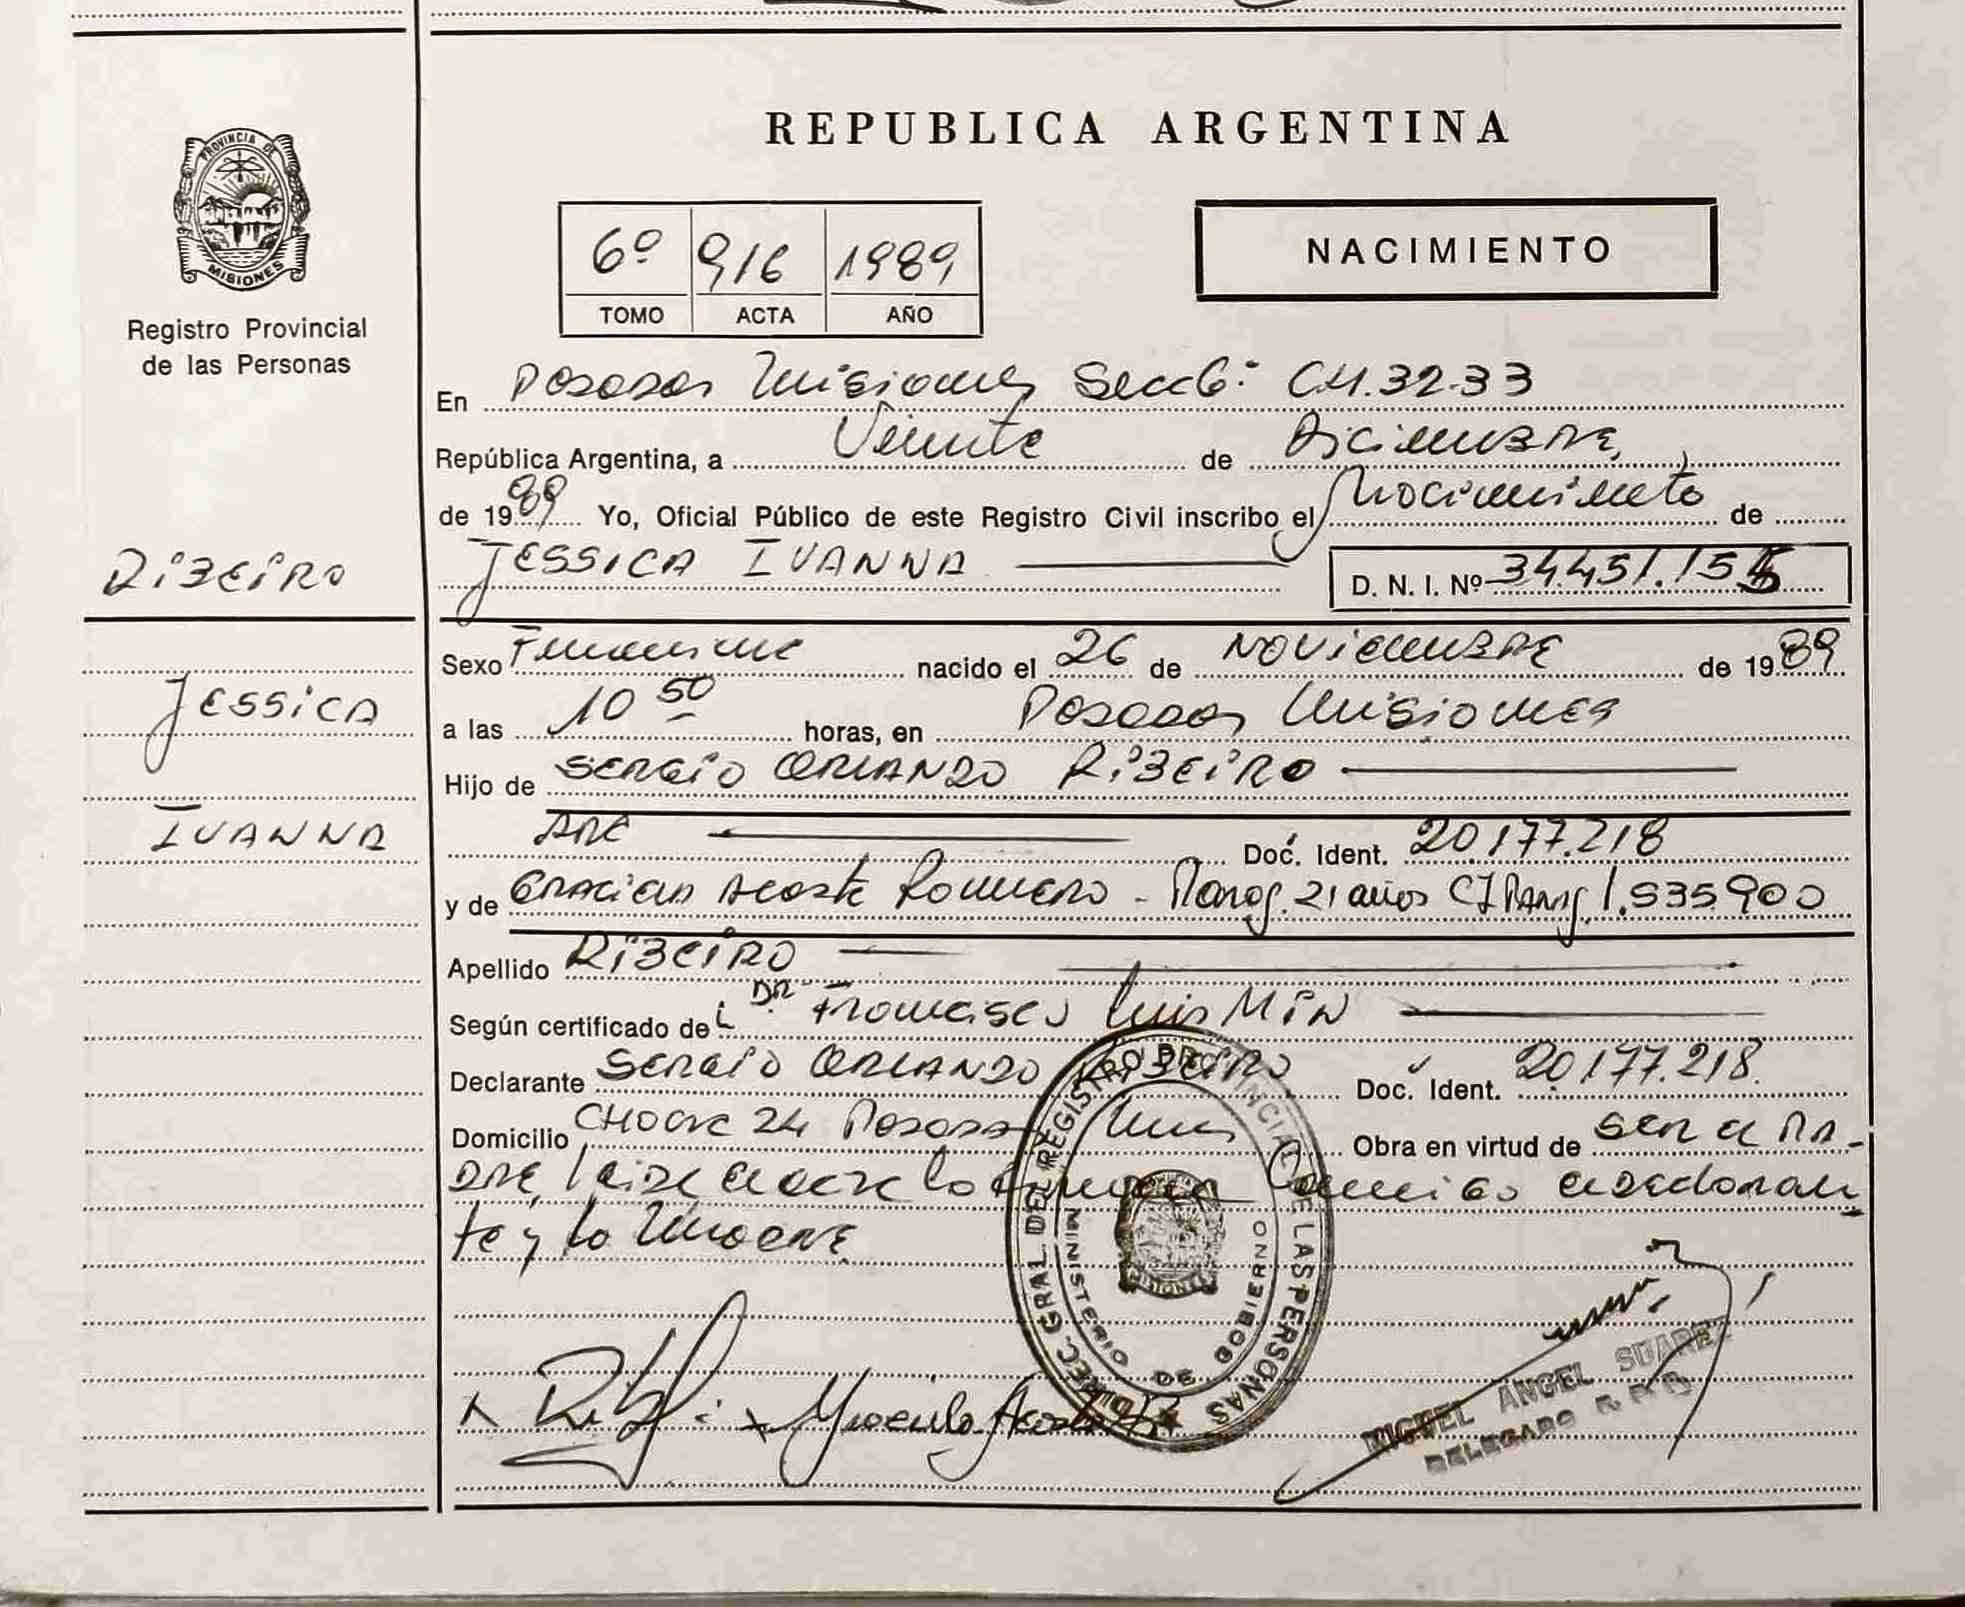 REPUBLICA ARGENTINA
PROVINCIA DE
MISIONES
Registro Provincial
de las Personas
6º 916 1989
TOMO ACTA AÑO
NACIMIENTO
En Posadas Misiones Secc 6ª CH.32-33
República Argentina, a Veinte de Diciembre,
de 1989 Yo, Oficial Público de este Registro Civil inscribo el Nacimiento de
JESSICA IVANNA D. N. I. Nº 34.451.15
RIBEIRO
JESSICA
IVANNA
Sexo Femenino nacido el 26 de NOVIEMBRE de 1989
a las 10 50 horas, en Posadas Misiones
Hijo de SERGIO ORLANDO RIBEIRO
ARG Doc. Ident. 20.177.218
y de GRACIELA Acosta Romero - Parag. 21 años CI Parag. 1.535.900
Apellido RIBEIRO
Según certificado de DR. Francisco Luis MIN
Declarante SERGIO ORLANDO RIBEIRO Doc. Ident. 20.177.218.
Domicilio CHACRA 24 Posadas Mnes Obra en virtud de SER el PA-
DRE, Leida el acta lo firman conmigo el declaran
te y la Madre
DIREC. GRAL. DEL REGISTRO PROVINCIAL DE LAS PERSONAS
MINISTERIO DE GOBIERNO
MISIONES
MIGUEL ANGEL SUAREZ
DELEGADO R. P. P.